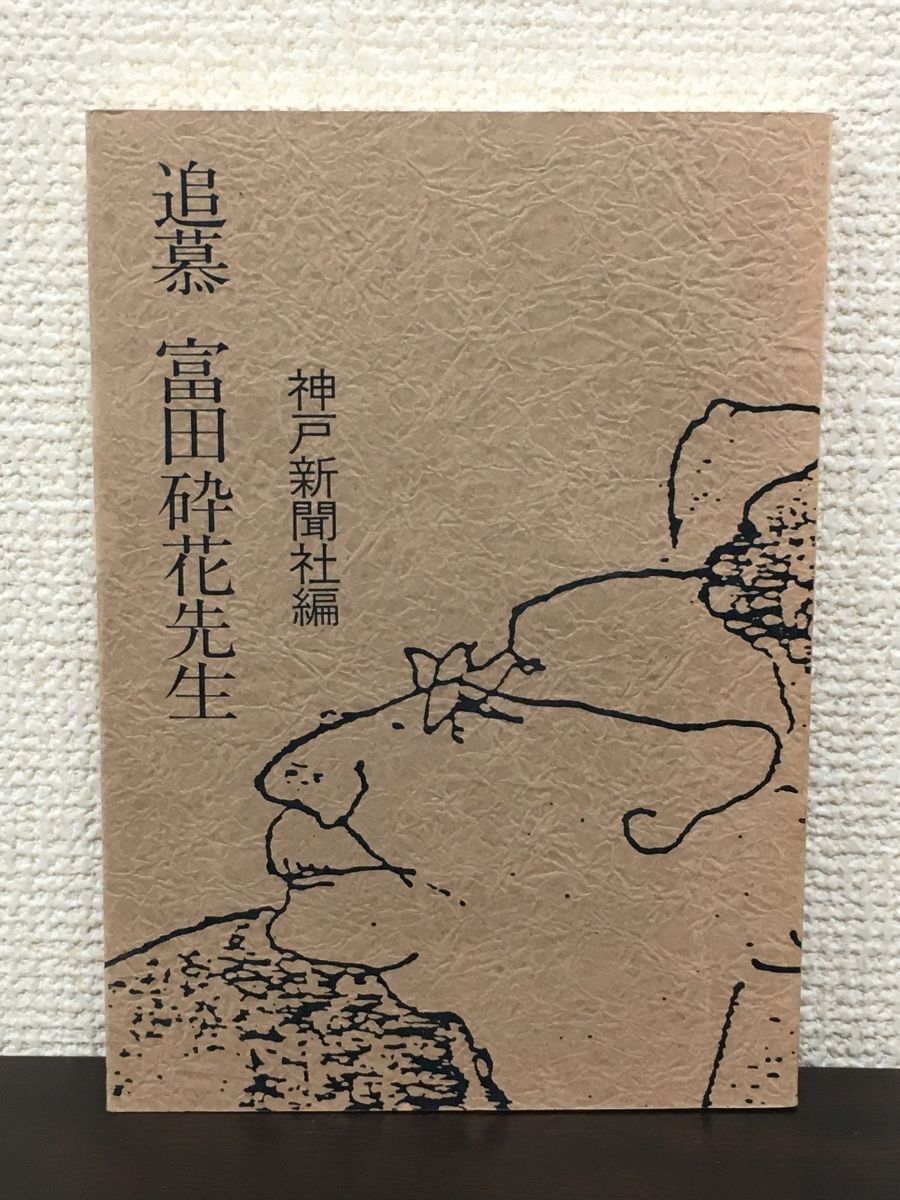 追慕 富田砕花先生
神戸新聞社編